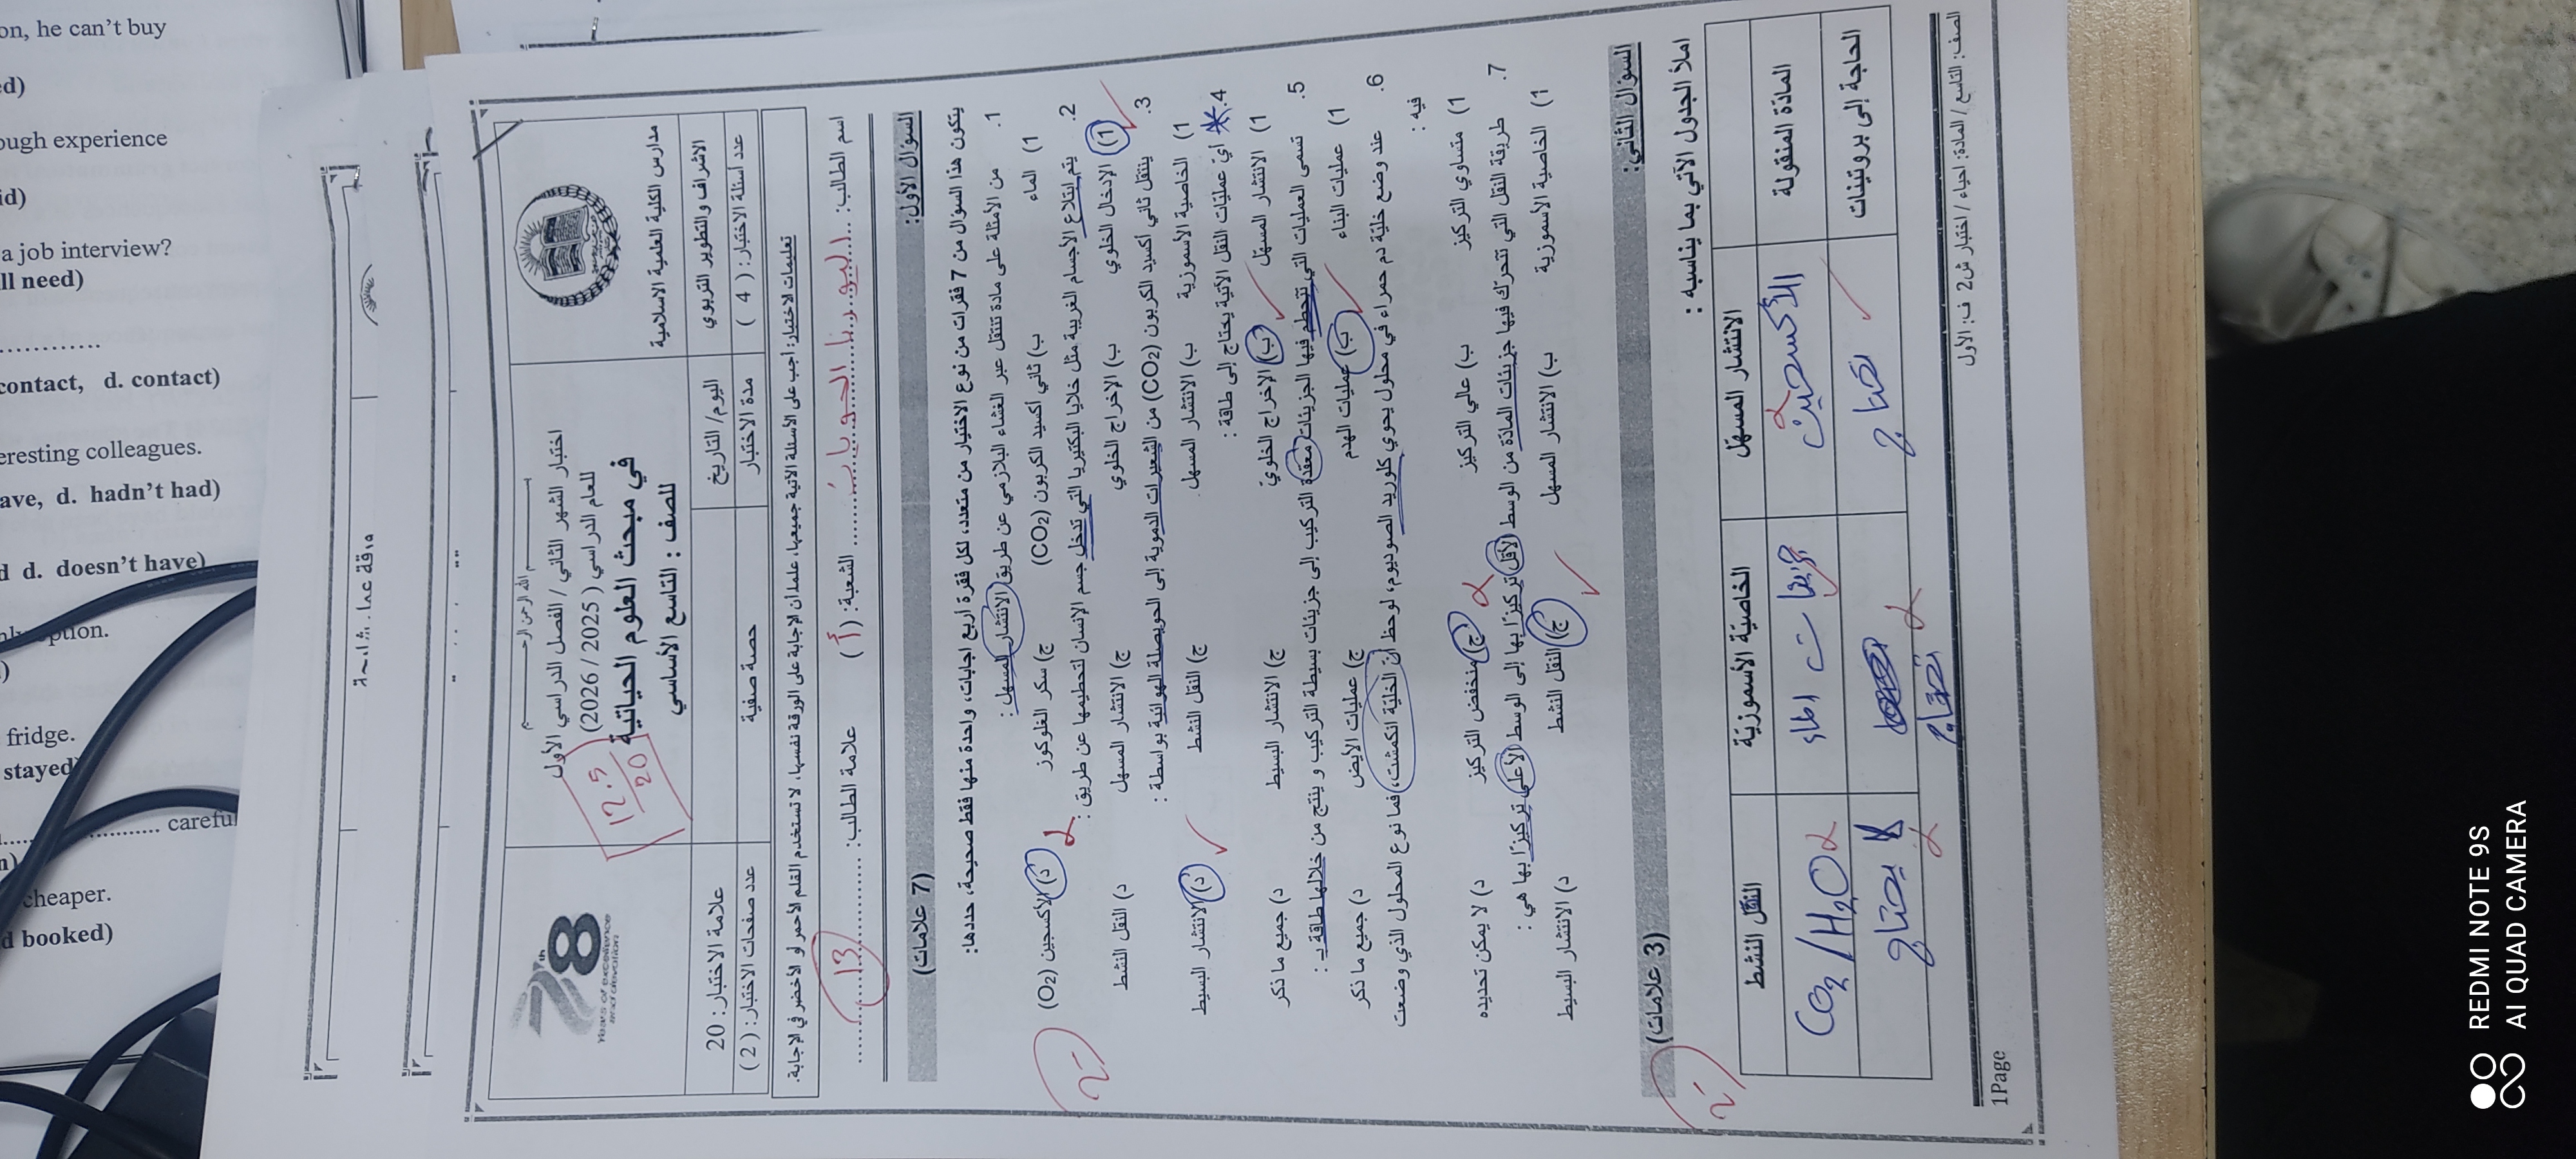 on, he can't buy
ed)
ough experience
id)
a job interview?
ll need)
contact, d. contact)
eresting colleagues.
ave, d. hadn't had)
d d. doesn't have)
option.
fridge.
stayed)
careful
cheaper.
d booked)
مدارس الكلية العلمية الاسلامية
اختبار الشهر الثاني / الفصل الدراسي الأول
للعام الدراسي ( 2025 / 2026)
في مبحث العلوم الحياتية
للصف : التاسع الأساسي
12.5
20
78th
Years of excellence and devotion
الاشراف والتطوير التربوي
اليوم/ التاريخ
علامة الاختبار: 20
عدد أسئلة الاختبار: ( 4 )
مدة الاختبار
حصة صفية
عدد صفحات الاختبار: ( 2 )
تعليمات الاختبار: أجب على الأسئلة الآتية جميعها، علما ان الإجابة على الورقة نفسها، لا تستخدم القلم الأحمر أو الأخضر في الإجابة.
اسم الطالب: الشعبة: ( أ ) علامة الطالب: 13
السؤال الأول: (7 علامات)
يتكون هذا السؤال من 7 فقرات من نوع الاختيار من متعدد، لكل فقرة أربع اجابات، واحدة منها فقط صحيحة، حددها:
1. من الأمثلة على مادة تنتقل عبر الغشاء البلازمي عن طريق الانتشار المسهل :
أ) الماء ب) ثاني أكسيد الكربون (CO₂) ج) سكر الغلوكوز د) الأكسجين (O₂)
2. يتم ابتلاع الأجسام الغريبة مثل خلايا البكتيريا التي تدخل جسم الإنسان لتحطيمها عن طريق :
أ) الإدخال الخلوي ب) الإخراج الخلوي ج) الانتشار المسهل د) النقل النشط
3. ينتقل ثاني أكسيد الكربون (CO₂) من الشعيرات الدموية إلى الحويصلة الهوائية بواسطة :
أ) الخاصية الأسموزية ب) الانتشار المسهل ج) النقل النشط د) الانتشار البسيط
4. أي عمليات النقل الآتية يحتاج إلى طاقة :
أ) الانتشار المسهل ب) الإخراج الخلوي ج) الانتشار البسيط د) جميع ما ذكر
5. تسمى العمليات التي تتحطم فيها الجزيئات معقدة التركيب إلى جزيئات بسيطة التركيب و ينتج من خلالها طاقة بـ :
أ) عمليات البناء ب) عمليات الهدم ج) عمليات الأيض د) جميع ما ذكر
6. عند وضع خلية دم حمراء في محلول يحوي كلوريد الصوديوم، لوحظ أن الخلية انكمشت، فما نوع المحلول الذي وضعت
فيه :
أ) متساوي التركيز ب) عالي التركيز ج) منخفض التركيز د) لا يمكن تحديده
7. طريقة النقل التي تتحرك فيها جزيئات المادة من الوسط الأقل تركيزًا بها إلى الوسط الأعلى تركيزًا بها هي :
أ) الخاصية الأسموزية ب) الانتشار المسهل ج) النقل النشط د) الانتشار البسيط
السؤال الثاني: (3 علامات)
املأ الجدول الآتي بما يناسبه :
الانتشار المسهل الخاصية الأسموزية النقل النشط
المادة المنقولة الأكسجين جزيئات الماء CO₂ / H₂O
الحاجة إلى بروتينات تحتاج تحتاج لا يحتاج
الصف: التاسع / المادة: احياء / اختبار ش2 ف: الأول
1Page
REDMI NOTE 9S
AI QUAD CAMERA